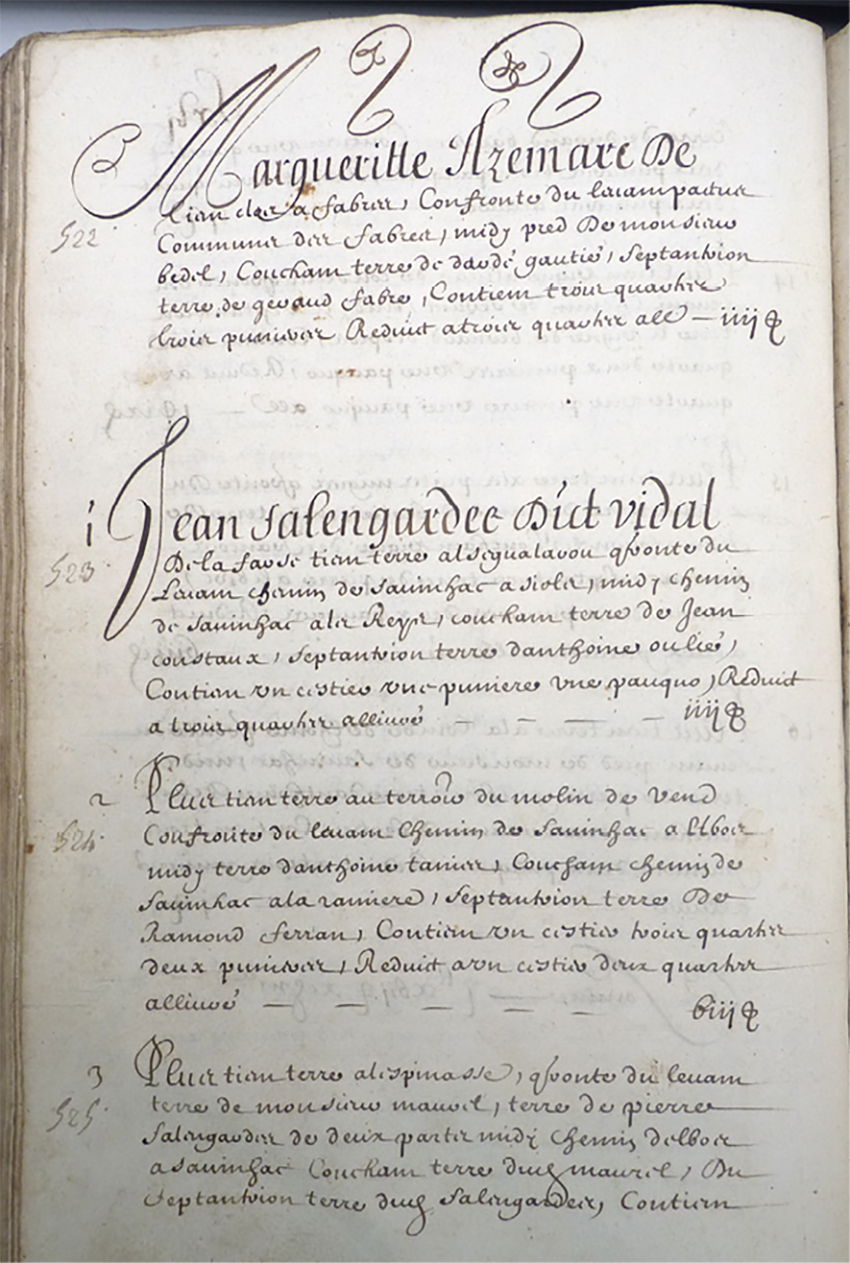 Margueritte Azemare De
522
tien clos a fabres, Confronte du levam patus
Communs des fabres, midy pred De monsieur
bedel, Coucham terre de daudé gautié, septantrion
terre de geraud fabre, Contiem trois quartes
trois punieres Reduit a trois quartes all — iiij
1 Jean Salengardes Dict vidal
523
De la fasse tien terre al segualarou qfronte du
Levam chemin de savinhac a siols, midy chemin
de savinhac a les Reys, coucham terre de Jean
coustaux, septantrion terre danthoine oulié,
Contien vn cestier vne puniere vne pauquo, Reduit
a trois quartes allivré — — — — iiij
2 Plus tien terre au terroir du molin de vend
524
Confronte du levam Chemin de Savinhac a Elbes
midy terre danthoine tanies, Coucham chemin de
savinhac a la ramiere, septantrion terre De
Ramond ferran, Contiem vn cestier trois quartes
deux punieres, Reduit a vn cestier deux quartes
allivré — — — — — biij
3 Plus tien terre a lespinasse, qfronte du levam
525
terre de monsieur maurel, terre de pierre
Salengardes de deux partz midi chemin delbes
a savinhac Coucham terre dud maurel, Du
Septantrion terre dud Salengardes, Contiem